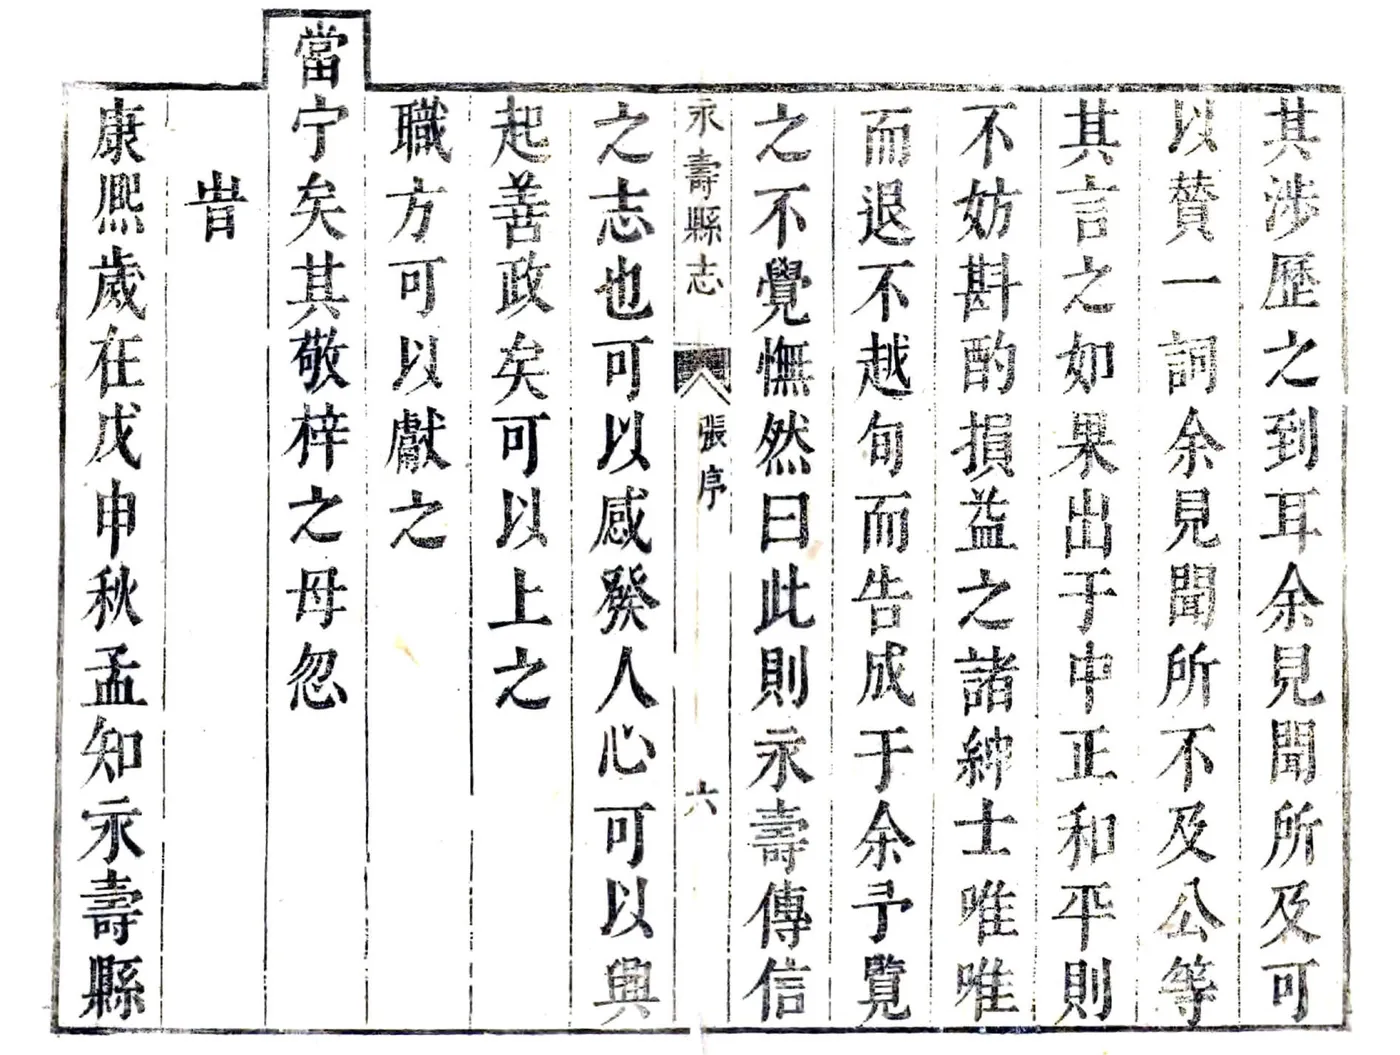 其涉歷之到耳余見聞所及可
以贊一詞余見聞所不及公等
其言之如果出于中正和平則
不妨斟酌損益之諸紳士唯唯
而退不越旬而告成于余予覽
之不覺憮然曰此則永壽傳信
永壽縣志 張序 六
之志也可以感發人心可以興
起善政矣可以上之
職方可以獻之
當宁矣其敬梓之毋忽
旹
康熙歲在戊申秋孟知永壽縣